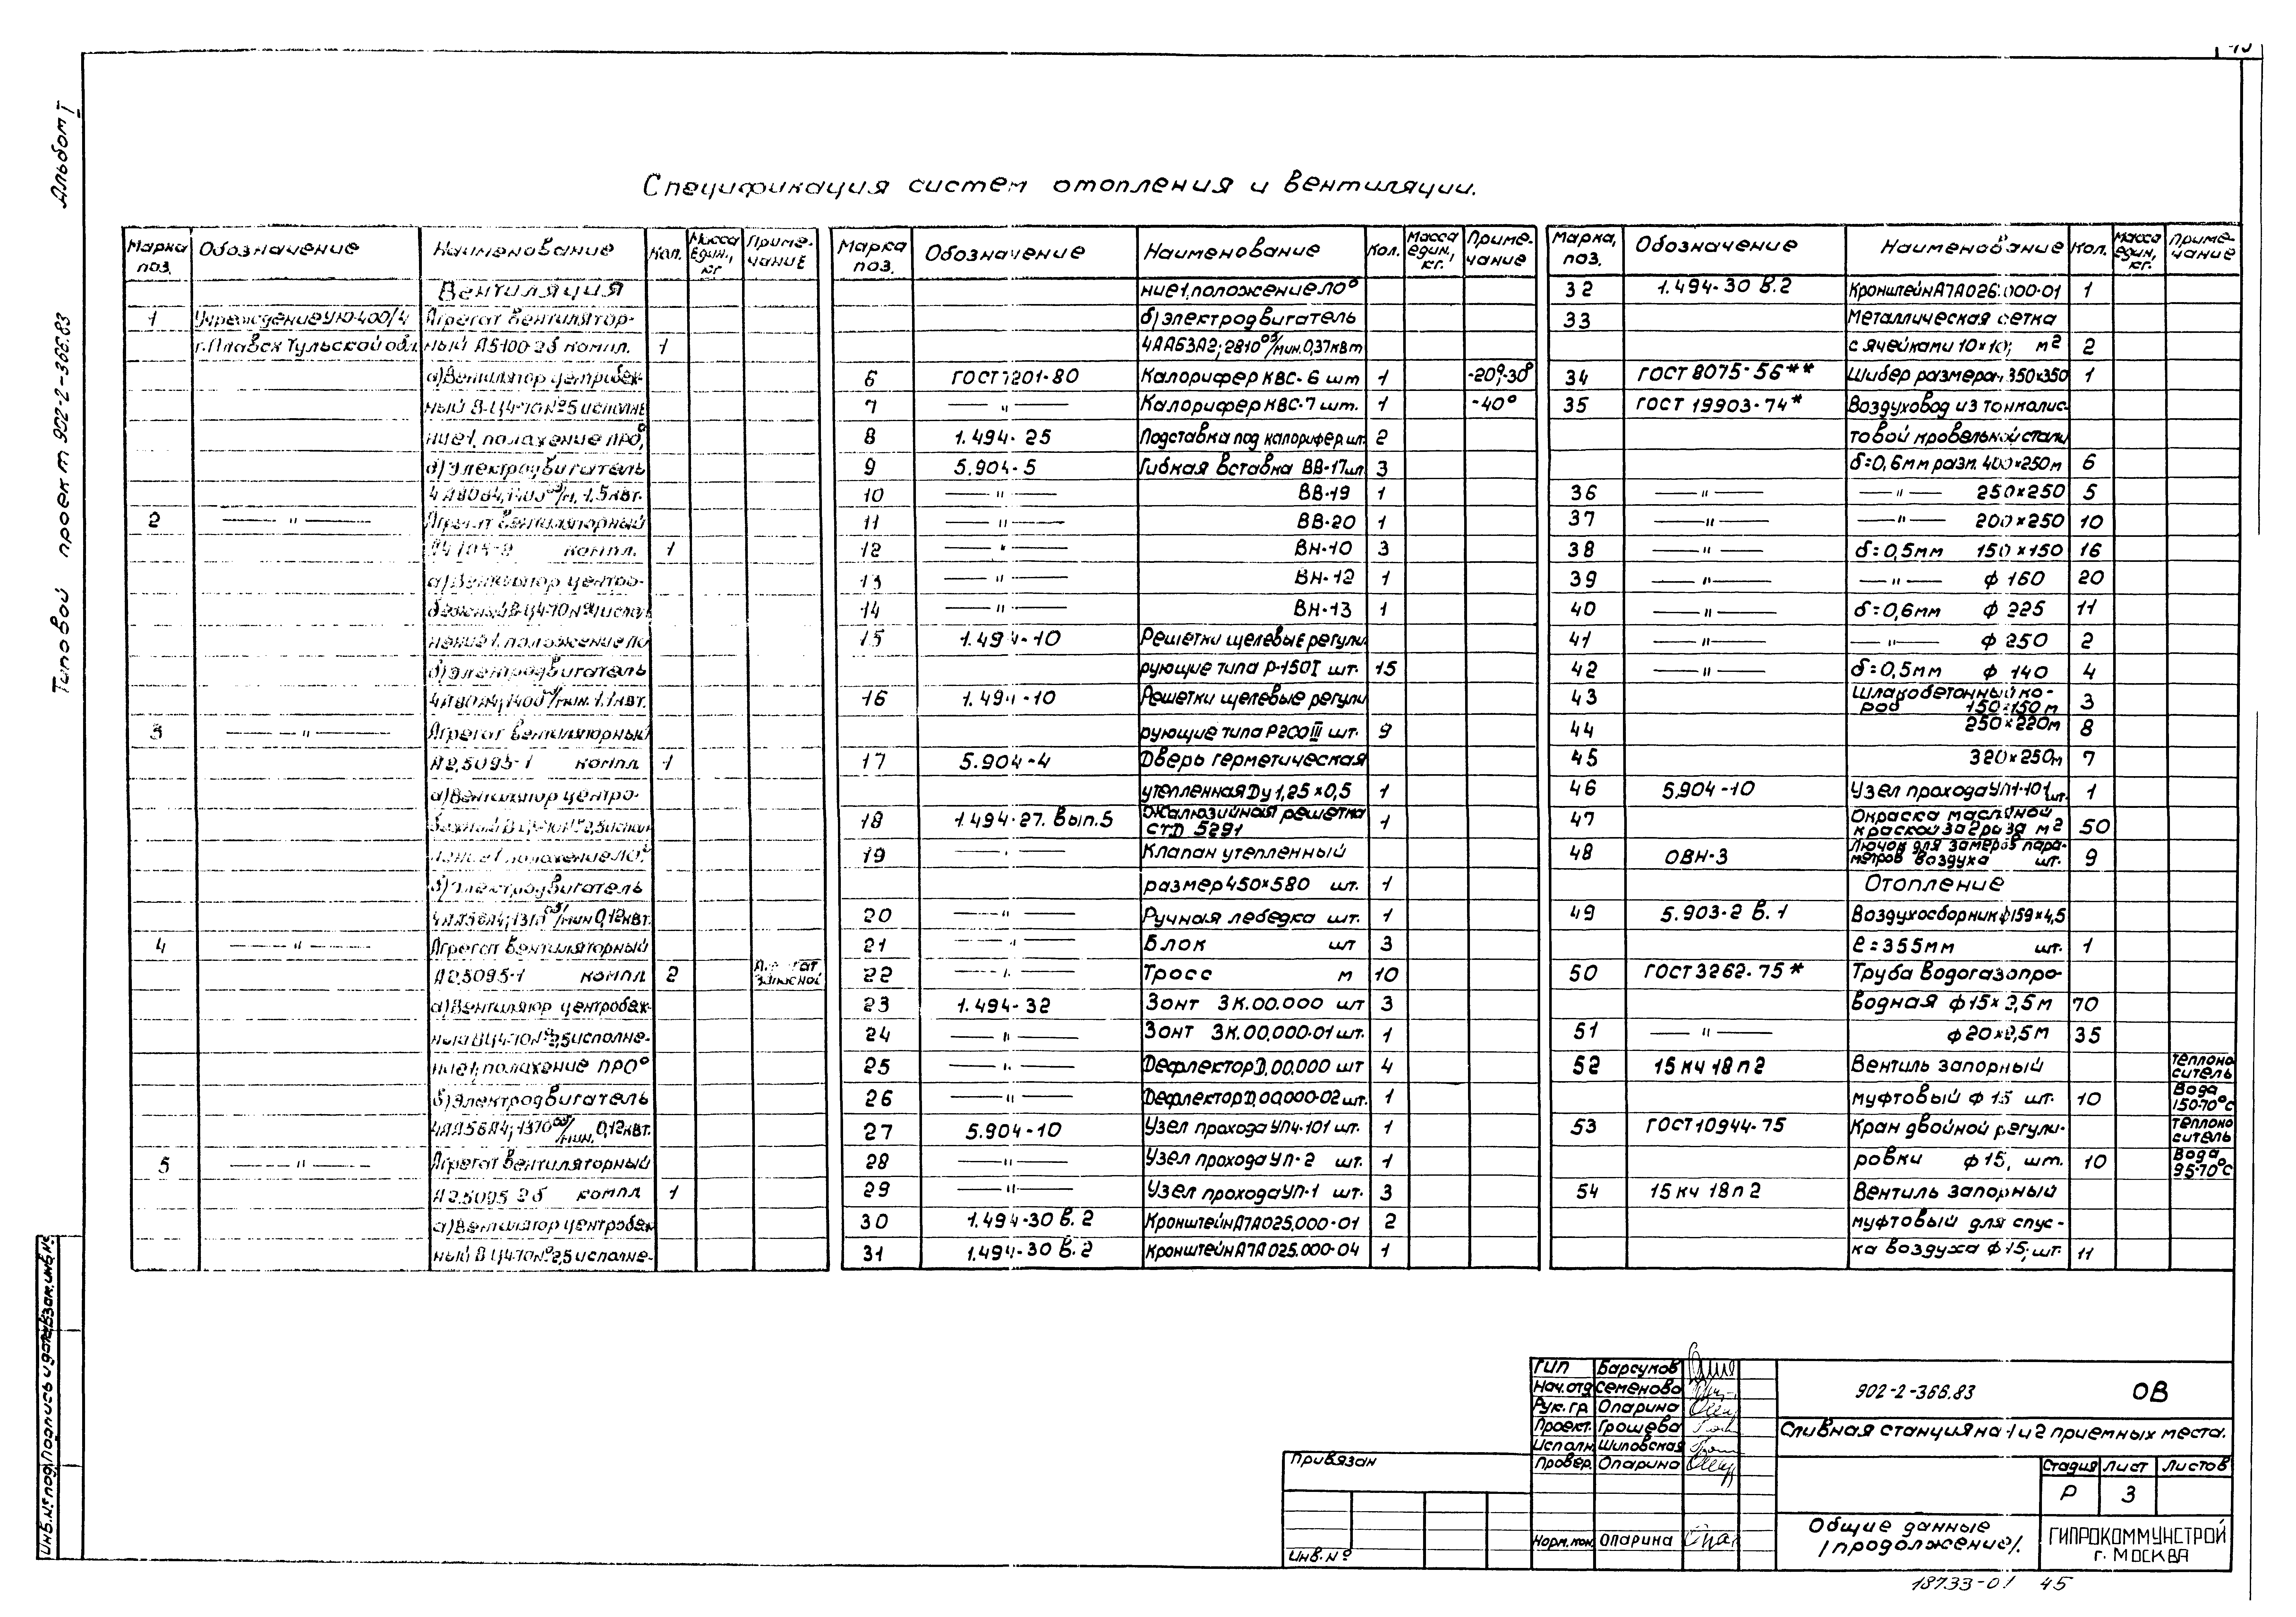 Альбом I
Типовой проект 902-2-366.83
Спецификация систем отопления и вентиляции.
Марка поз. Обозначение Наименование Кол. Масса един., кг Приме-чание
Вентиляция
1 Учреждение УЮ-400/4 Агрегат вентилятор-
г. Плавск Тульской обл. ный А5100-2б компл. 1
а) Вентилятор центробеж-
ный В-Ц4-70 №5 исполне
ние1, положение ПР0°,
б) Электродвигатель
4А80В4; 1400 об/м, 1,5 квт.
2 —"— Агрегат вентиляторный
компл. 1
а) Вентилятор центро-
бежный В-Ц4-70 №4 исполн
нение1, положение Л0
б) Электродвигатель
4А80А4; 1400 об/мин. 1.1 квт.
3 —"— Агрегат вентиляторный
А2,5095-1 компл 1
а) Вентилятор центро-
бежный В Ц4-70 №2,5 исполн
нение1 положение Л0°
б) Электродвигатель
4АА56А4; 1370 об/мин 0,12 квт.
4 —"— Агрегат вентиляторный
А2,5095-1 компл 2 Агрегат запасной
а) Вентилятор центробеж-
ный В Ц4-70 №2,5 исполне-
ние1, положение ПР0°
б) Электродвигатель
4АА56А4; 1370 об/мин, 0,12 квт.
5 —"— Агрегат вентиляторный
А2,5095-2б компл 1
а) Вентилятор центробеж
ный В Ц4-70 №2,5 исполне-
Марка поз. Обозначение Наименование Кол. Масса един., кг. Приме-чание
ние1, положение Л0°
б) электродвигатель
4АА63А2; 2810 об/мин. 0,37 квт
6 ГОСТ 7201-80 Калорифер КВС-6 шт 1 -20°,-30°
7 —"— Калорифер КВС-7 шт. 1 -40°
8 1.494-25 Подставка под калорифер шт. 2
9 5.904-5 Гибкая вставка ВВ-17 шт 3
10 —"— ВВ-19 1
11 —"— ВВ-20 1
12 —"— Вн-10 3
13 —"— Вн-12 1
14 —"— Вн-13 1
15 1.494-10 Решетки щелевые регули
рующие типа Р-150I шт. 15
16 1.494-10 Решетки щелевые регули
рующие типа Р200III шт. 9
17 5.904-4 Дверь герметическая
утепленная Ду 1,25×0,5 1
18 1.494-27. Вып.5 Жалюзийная решетка СТД 5291 1
19 —"— Клапан утепленный
размер 450×580 шт. 1
20 —"— Ручная лебедка шт. 1
21 —"— Блок шт 3
22 —"— Тросс м 10
23 1.494-32 Зонт ЗК.00.000 шт 3
24 —"— Зонт ЗК.00.000-01 шт. 1
25 —"— Дефлектор Д.00.000 шт 4
26 —"— Дефлектор Д.00.000-02 шт. 1
27 5.904-10 Узел прохода УП4-101 шт. 1
28 —"— Узел прохода УП-2 шт. 1
29 —"— Узел прохода УП-1 шт. 3
30 1.494-30 В.2 Кронштейн А7А025.000-01 2
31 1.494-30 В.2 Кронштейн А7А025.000-04 1
Марка, поз. Обозначение Наименование Кол. Масса един, кг. Приме-чание
32 1.494-30 В.2 Кронштейн А7А026.000-01 1
33 Металлическая сетка
с ячейками 10×10; м2 2
34 ГОСТ 8075-56** Шибер размером 350×350 1
35 ГОСТ 19903-74* Воздуховод из тонколис-
товой кровельной стали
δ=0,6 мм разм. 400×250 м 6
36 —"— —"— 250×250 5
37 —"— —"— 200×250 10
38 —"— δ=0,5мм 150×150 16
39 —"— —"— ф 160 20
40 —"— δ=0,6мм ф 225 11
41 —"— —"— ф 250 2
42 —"— δ=0,5мм ф 140 4
43 Шлакобетонный ко-роб 150×150 м 3
44 250×220м 8
45 320×250м 7
46 5.904-10 Узел прохода УП1-101 шт. 1
47 Окраска масляной краской за 2 раза м2 50
48 ОВН-3 Лючок для замеров пара-метров воздуха шт. 9
Отопление
49 5.903-2 В.1 Воздухосборник ф159×4,5
ℓ=355мм шт. 1
50 ГОСТ 3262-75* Труба водогазопро-
водная ф15×2,5 м 70
51 —"— ф20×2,5 м 35
52 15 кч 18п2 Вентиль запорный теплоно ситель
муфтовый ф 15 шт. 10 Вода 150-70°С
53 ГОСТ 10944-75 Кран двойной регули- теплоно ситель
ровки ф15, шт. 10 Вода 95-70°С
54 15 кч 18п2 Вентиль запорный
муфтовый для спус-
ка воздуха ф15; шт. 11
ГИП Барсуков
Нач.отд Семенова
Рук.гр Опарина
Проект. Грошева
Исполн. Шиловская
Провер. Опарина
Норм.кон Опарина
902-2-366.83 ОВ
Сливная станция на 1 и 2 приемных места.
Стадия Лист Листов
Р 3
Общие данные /продолжение/.
ГИПРОКОММУНСТРОЙ
г. МОСКВА
Привязан
Инв.№
Инв.№ под Подпись и дата Взам.инв.№
18733-01 45